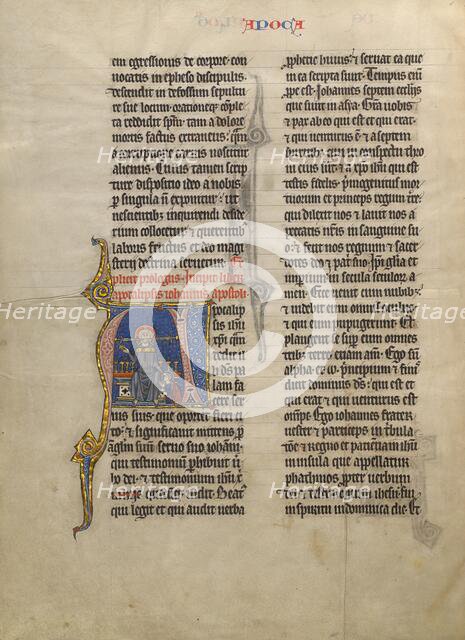 APOCA
em egressionis de corpore con
uocatis in epheso discipulis
descendit in defossum sepultu
re sue locum orationeque comple
ta reddidit spm tam a dolore
mortis factus extraneus quam
a corruptione carnis noscitur
alienus Cuius tamen scrip
ture dispositio
per singula non exponitur ut
nescientibus inquirendi deside
rium collocetur et querentibus
laboris fructus et deo magi
sterij doctrina seruetur Ex
plicit prologus Incipit liber
apocalipsis iohannis apostoli
Apocalip
sis ihu
xpi quam
dedit illi
ds pa
lam fa
cere ser
uis suis que oportet fieri ci
to et significauit mittens per
anglm suum seruo suo iohani
qui testimonium perhibuit
dei et testimonium ihu
uidit Beatus
qui legit et qui audit uerba
prophetie huius et seruat ea que
in ea scripta sunt Tempus eni
prope est Iohannes septem ecclijs
que sunt in asya Gra uobis
et pax ab eo qui est et qui erat
et qui uenturus est et a septem
spiritibus qui in conspectu throni
eius sunt et a xpo ihu qui est
testis fidelis primogenitus mor
tuorum et princeps regum terre
qui dilexit nos et lauit nos a
peccatis nris in sanguine suo
et fecit nos regnum et sacer
dotes deo et patri suo Ipi gla et
imperium in secula seculorum a
men Ecce uenit cum nubibus
et uidebit eum omnis oculus
et qui eum pupugerunt Et
plangent se super eum omnes
tribus terre etiam amen Ego sum
alpha et o principium et fi
nis dicit dominus ds qui est et
qui erat et qui uenturus est
omps Ego iohannes frater
uester et particeps in tribula
toe et regno et patientia in ihu
fui in insula que appellatur
pathmos propter uerbum
dei et testimonium ihesu fui
in spiritu in dominica die Et
Heritage
Heritage
Heritage
Heritage
Heritage
Heritage
Heritage
Heritage